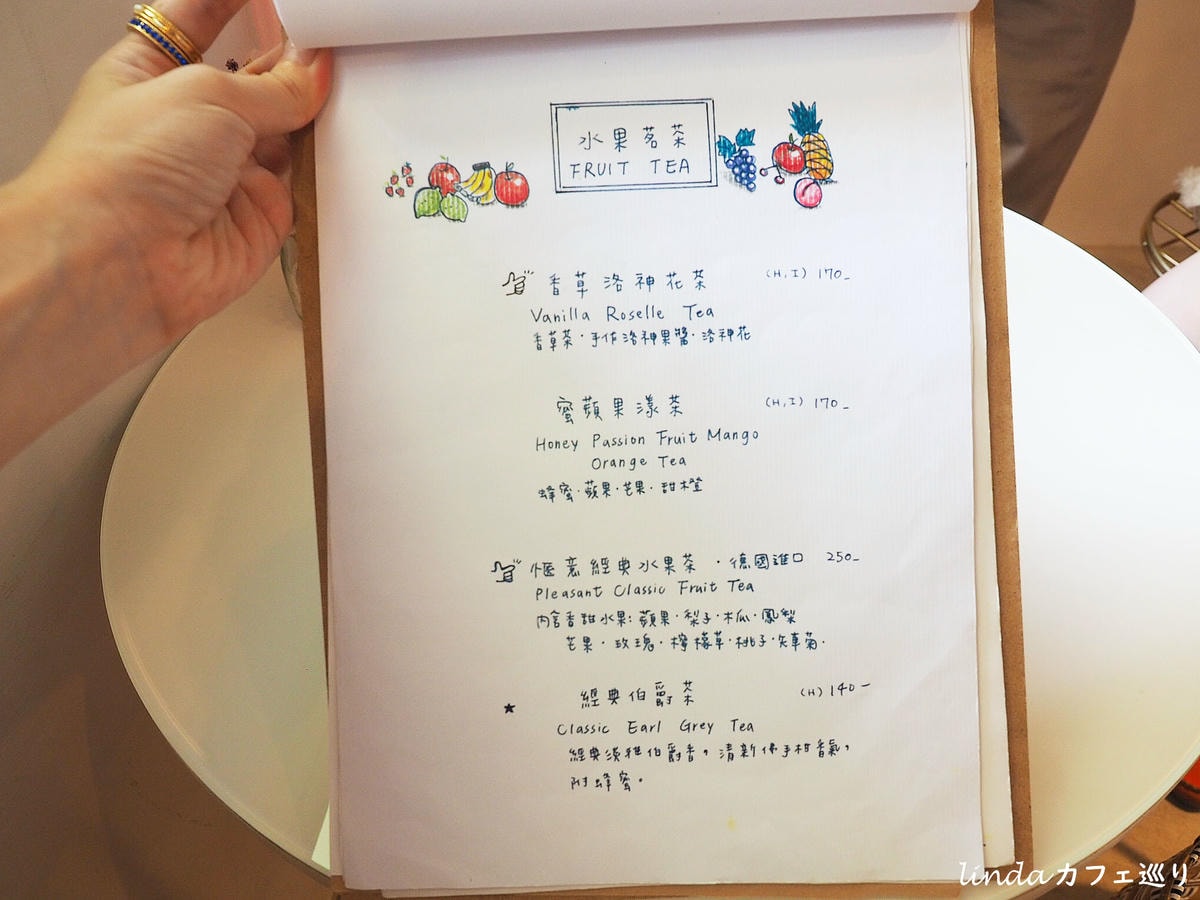 水果茗茶
FRUIT TEA
香草洛神花茶 (H,I) 170-
Vanilla Roselle Tea
香草茶·手作洛神果醬·洛神花
蜜蘋果漾茶 (H,I) 170-
Honey Passion Fruit Mango
Orange Tea
蜂蜜·蘋果·芒果·甜橙
愜意經典水果茶·德國進口 250-
Pleasant Classic Fruit Tea
內含香甜水果:蘋果·梨子·木瓜·鳳梨
芒果·玫瑰·檸檬草·桃子·矢車菊.
★ 經典伯爵茶 (H) 140-
Classic Earl Grey Tea
經典淡雅伯爵香,清新佛手柑香氣,
附蜂蜜。
lindaカフェ巡り